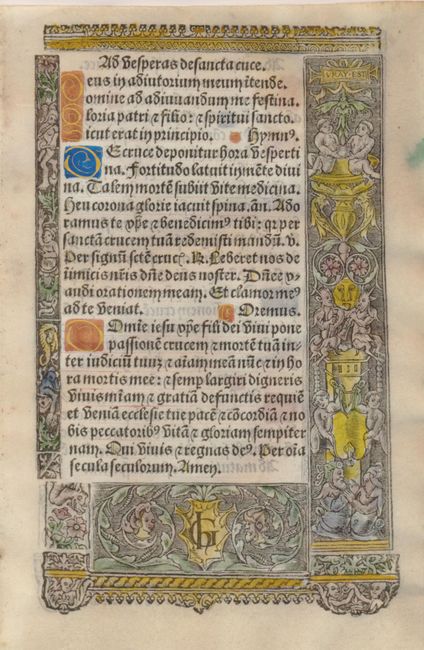 Ad vesperas de sancta cruce.
VRAY · EST
eus in adiutorium meum ītende.
omine ad adiuuandum me festina.
loria patri ⁊ filio: ⁊ spiritui sancto.
icut erat in principio. Hymnꝰ.
E cruce deponitur hora vesperti
na. Fortitudo latuit in mēte diui
na. Talem mortē subiit vite medicina.
Heu corona glorie iacuit spina. añ. Ado
ramus te xp̄e ⁊ benedicimꝰ tibi: qꝛ per
sanctā crucem tuā redemisti mundū. v.
Per signū setē crucꝭ. ℟. Leberet nos de
inimicis nr̄is dn̄e deus noster. Dn̄e ex
audi orationem meam. Et clamor meꝰ
ad te veniat. Oremus.
Omīe iesu xp̄e fili dei viui pone
passionē crucem ⁊ mortē tuā in
ter iudiciū tuūꝫ ⁊ aīam meā nūc ⁊ in ho
ra mortis mee: ⁊ semp largiri digneris
viuis mīam ⁊ gratiā defunctis requiē
et veniā ecclesie tue pacē ⁊ cōcordiā ⁊ no
bis peccatoribꝰ vitā ⁊ gloriam sempiter
nam. Qui viuis ⁊ regnas deꝰ. Per oīa
secula seculorum. Amen.
GH